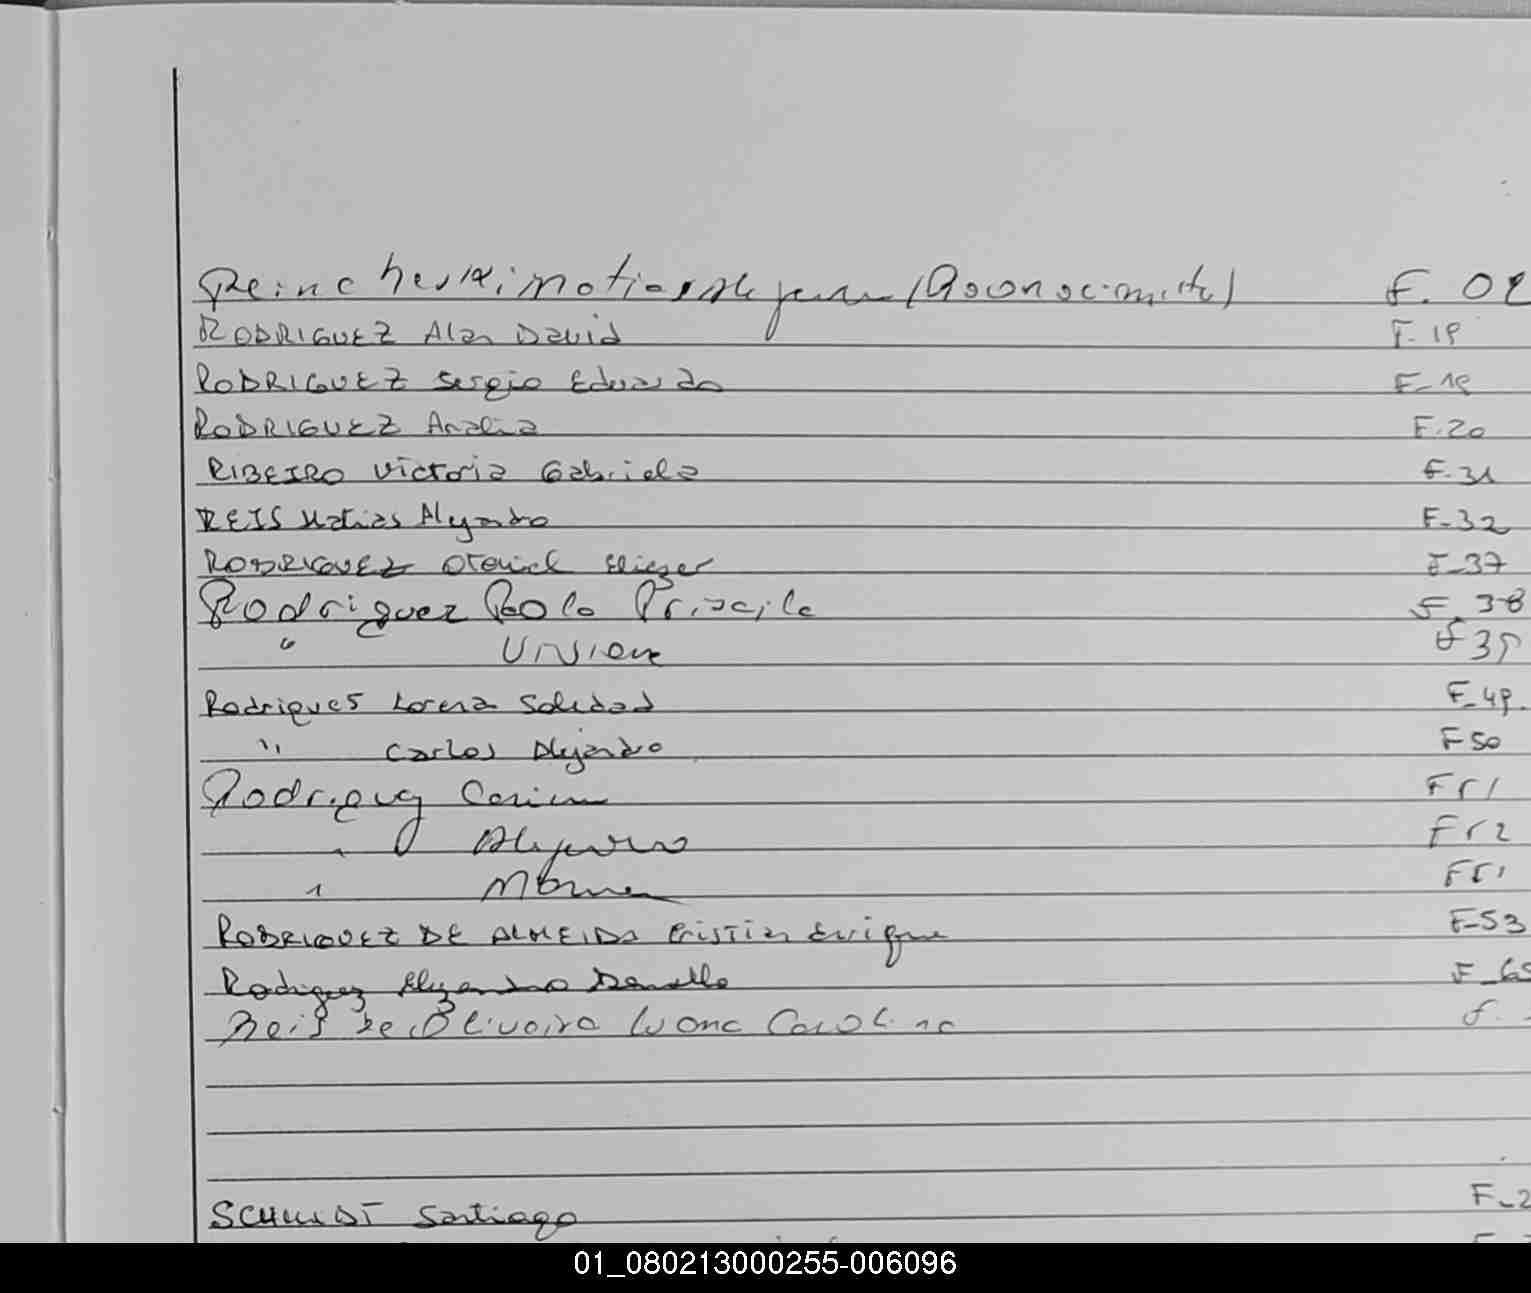 (Reconocimiento) F. 02
RODRIGUEZ Alan David F. 19
RODRIGUEZ Sergio Eduardo F-19
RODRIGUEZ Analia F.20
RIBEIRO Victoria Gabriela F.31
REIS Matias Alejandro F-32
RODRIGUEZ Otoniel Eliezer F-37
Rodriguez Paola Priscila F. 38
" Viviane F 39
Rodrigues Lorena Soledad F-49.
" Carlos Alejandro F50
Rodriguez Carina F51
" Alejandro F52
" F51
RODRIGUEZ DE ALMEIDA Cristian Enrique F-53
Rodriguez Alejandro F-65
Reis de Oliveira Ivana Carolina F.
SCHMIDT Santiago F-2
01_080213000255-006096